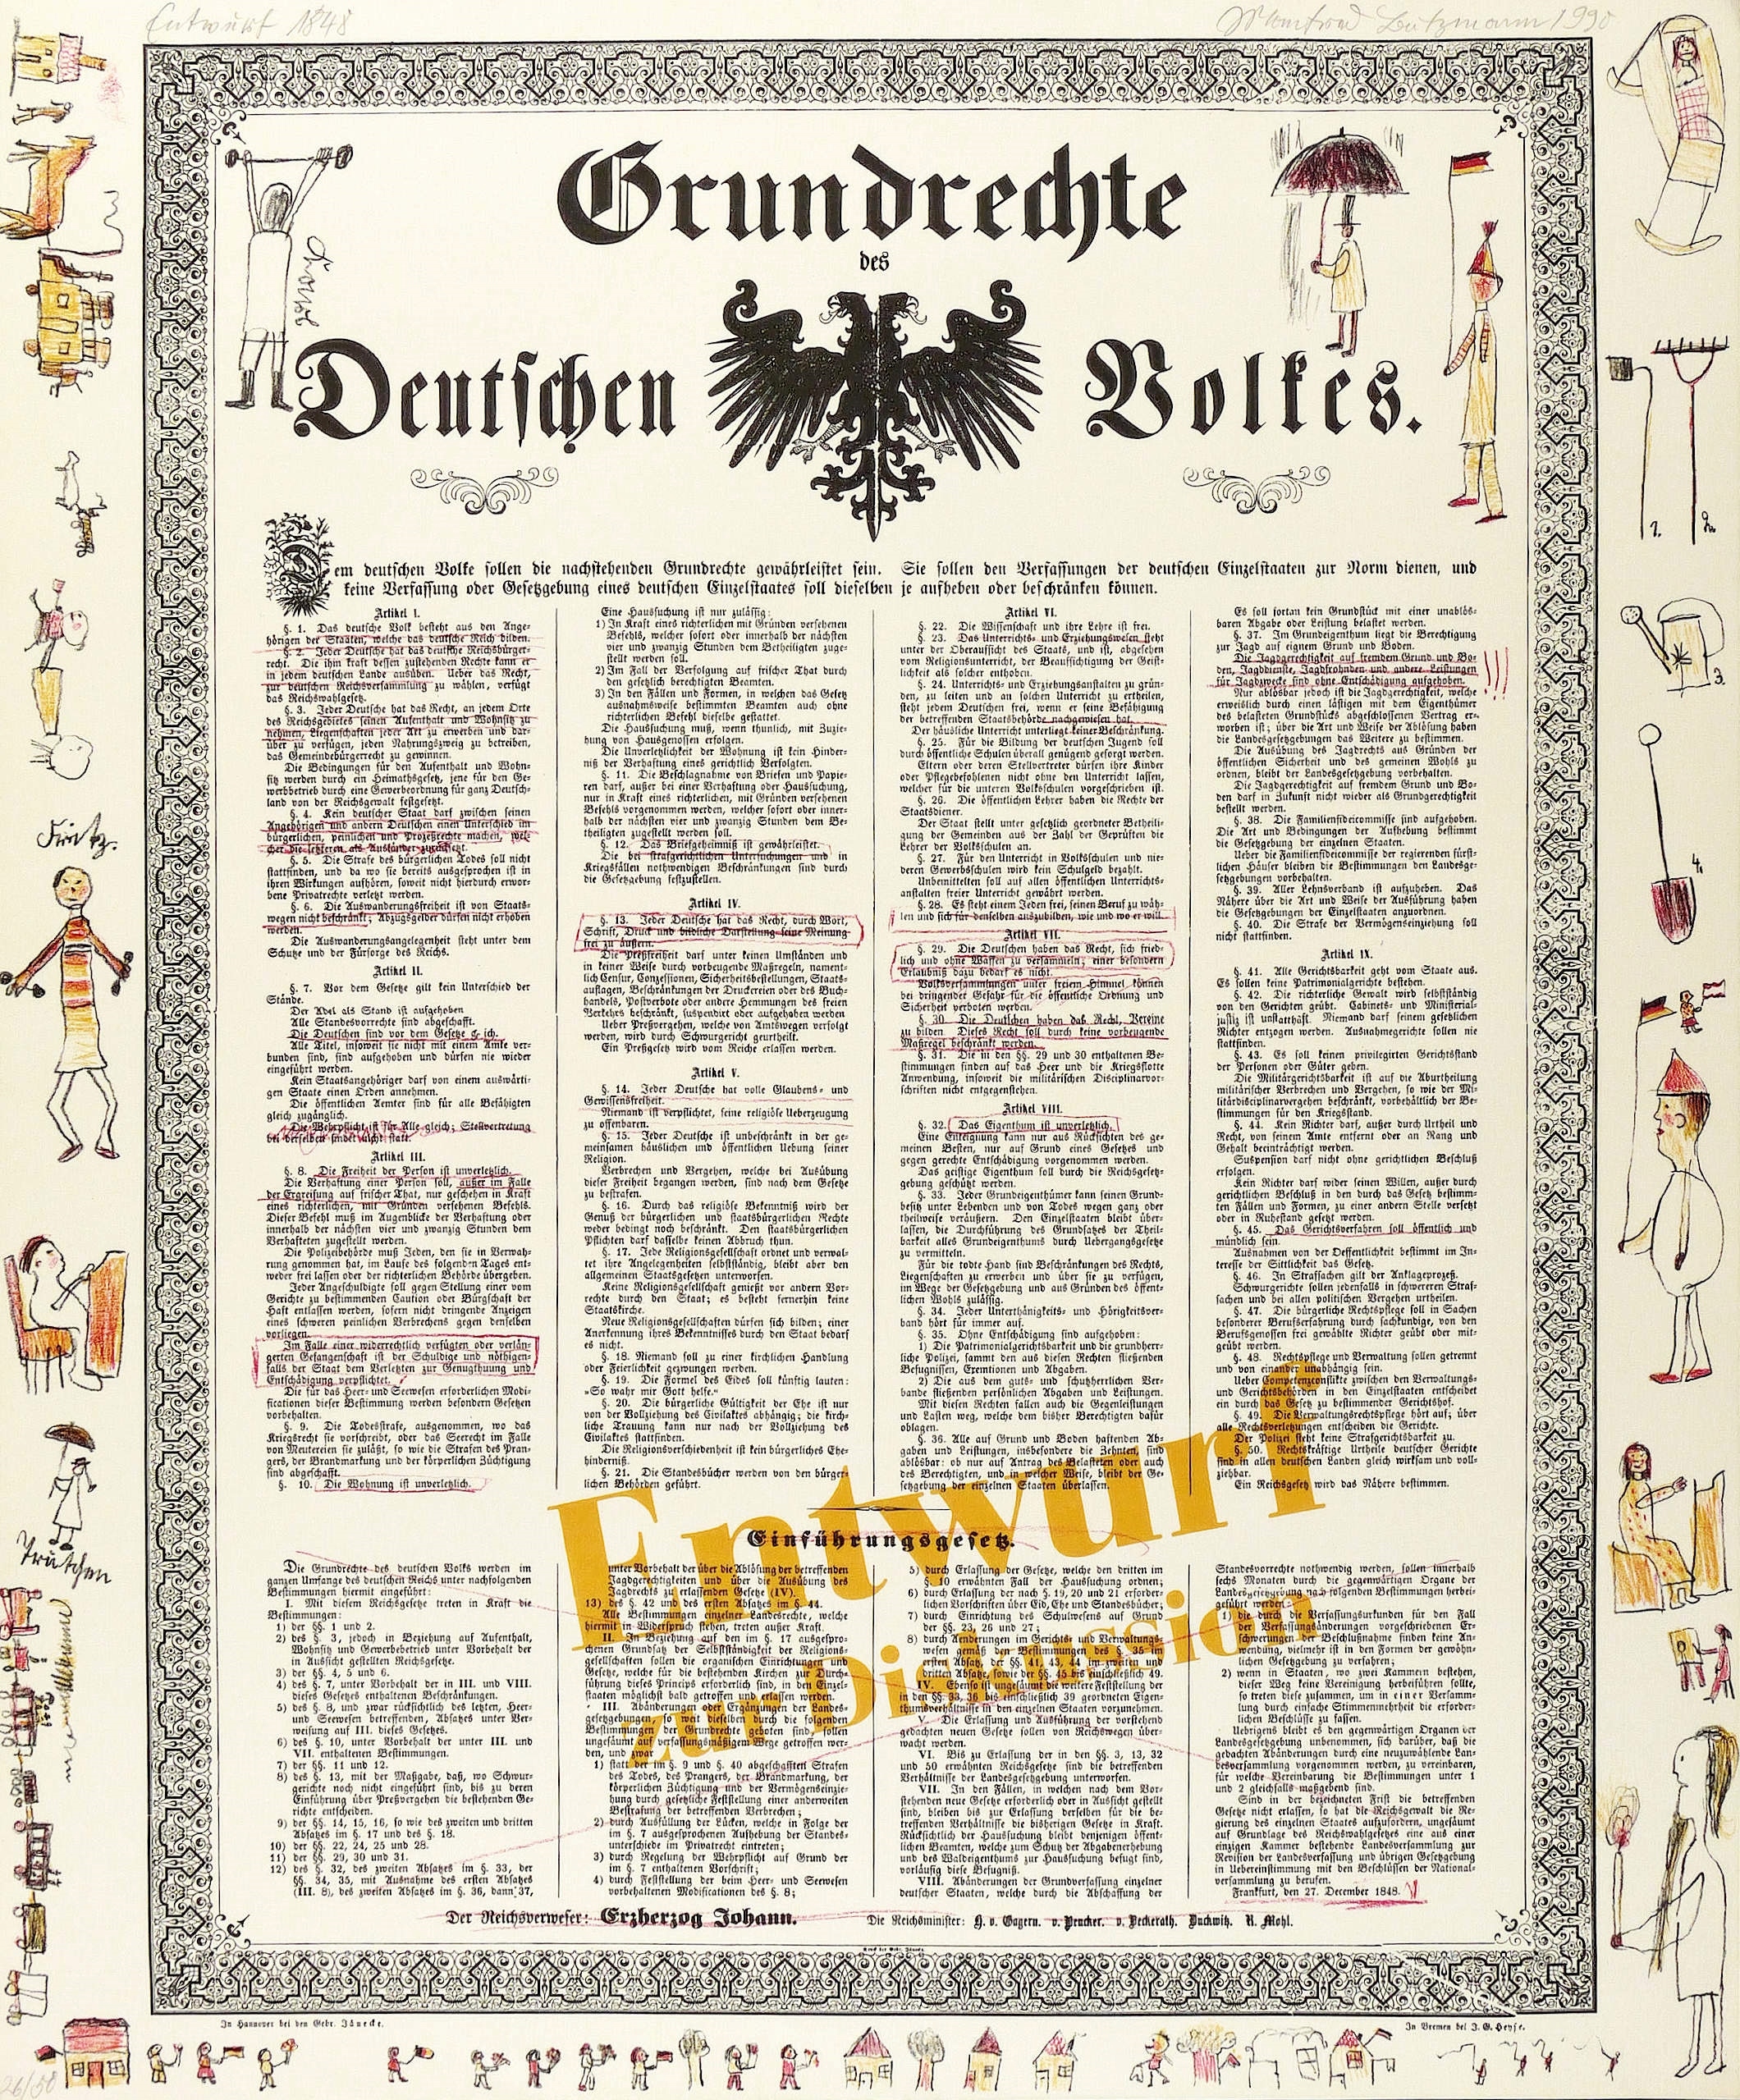 Entwurf 1848
Manfred Butzmann 1990
Grundrechte
des
Deutschen Volkes.
Dem deutschen Volke sollen die nachstehenden Grundrechte gewährleistet sein. Sie sollen den Verfassungen der deutschen Einzelstaaten zur Norm dienen, und
keine Verfassung oder Gesetzgebung eines deutschen Einzelstaates soll dieselben je aufheben oder beschränken können.
Artikel I.
§. 1. Das deutsche Volk besteht aus den Ange-
hörigen der Staaten, welche das deutsche Reich bilden.
§. 2. Jeder Deutsche hat das deutsche Reichsbürger-
recht. Die ihm kraft dessen zustehenden Rechte kann er
in jedem deutschen Lande ausüben. Ueber das Recht,
zur deutschen Reichsversammlung zu wählen, verfügt
das Reichswahlgesetz.
§. 3. Jeder Deutsche hat das Recht, an jedem Orte
des Reichsgebietes seinen Aufenthalt und Wohnsitz zu
nehmen, Liegenschaften jeder Art zu erwerben und dar-
über zu verfügen, jeden Nahrungszweig zu betreiben,
das Gemeindebürgerrecht zu gewinnen.
Die Bedingungen für den Aufenthalt und Wohn-
sitz werden durch ein Heimathsgesetz, jene für den Ge-
werbebetrieb durch eine Gewerbeordnung für ganz Deutsch-
land von der Reichsgewalt festgesetzt.
§. 4. Kein deutscher Staat darf zwischen seinen
Angehörigen und andern Deutschen einen Unterschied im
bürgerlichen, peinlichen und Prozeßrechte machen, wel-
cher die letzteren als Ausländer zurücksetzt.
§. 5. Die Strafe des bürgerlichen Todes soll nicht
stattfinden, und da wo sie bereits ausgesprochen ist in
ihren Wirkungen aufhören, soweit nicht hierdurch erwor-
bene Privatrechte verletzt werden.
§. 6. Die Auswanderungsfreiheit ist von Staats-
wegen nicht beschränkt; Abzugsgelder dürfen nicht erhoben
werden.
Die Auswanderungsangelegenheit steht unter dem
Schutze und der Fürsorge des Reichs.
Artikel II.
§. 7. Vor dem Gesetze gilt kein Unterschied der
Stände.
Der Adel als Stand ist aufgehoben
Alle Standesvorrechte sind abgeschafft.
Die Deutschen sind vor dem Gesetze gleich.
Alle Titel, insoweit sie nicht mit einem Amte ver-
bunden sind, sind aufgehoben und dürfen nie wieder
eingeführt werden.
Kein Staatsangehöriger darf von einem auswärti-
gen Staate einen Orden annehmen.
Die öffentlichen Aemter sind für alle Befähigten
gleich zugänglich.
Die Wehrpflicht ist für Alle gleich; Stellvertretung
bei derselben findet nicht statt.
Artikel III.
§. 8. Die Freiheit der Person ist unverletzlich.
Die Verhaftung einer Person soll, außer im Falle
der Ergreifung auf frischer That, nur geschehen in Kraft
eines richterlichen, mit Gründen versehenen Befehls.
Dieser Befehl muß im Augenblicke der Verhaftung oder
innerhalb der nächsten vier und zwanzig Stunden dem
Verhafteten zugestellt werden.
Die Polizeibehörde muß Jeden, den sie in Verwah-
rung genommen hat, im Laufe des folgenden Tages ent-
weder frei lassen oder der richterlichen Behörde übergeben.
Jeder Angeschuldigte soll gegen Stellung einer vom
Gerichte zu bestimmenden Caution oder Bürgschaft der
Haft entlassen werden, sofern nicht dringende Anzeigen
eines schweren peinlichen Verbrechens gegen denselben
vorliegen.
Im Falle einer widerrechtlich verfügten oder verlän-
gerten Gefangenschaft ist der Schuldige und nöthigen-
falls der Staat dem Verletzten zur Genugthuung und
Entschädigung verpflichtet.
Die für das Heer- und Seewesen erforderlichen Modi-
ficationen dieser Bestimmung werden besondern Gesetzen
vorbehalten.
§. 9. Die Todesstrafe, ausgenommen, wo das
Kriegsrecht sie vorschreibt, oder das Seerecht im Falle
von Meutereien sie zuläßt, so wie die Strafen des Pran-
gers, der Brandmarkung und der körperlichen Züchtigung
sind abgeschafft.
§. 10. Die Wohnung ist unverletzlich.
Eine Haussuchung ist nur zulässig:
1) In Kraft eines richterlichen mit Gründen versehenen
Befehls, welcher sofort oder innerhalb der nächsten
vier und zwanzig Stunden dem Betheiligten zuge-
stellt werden soll.
2) Im Fall der Verfolgung auf frischer That durch
den gesetzlich berechtigten Beamten.
3) In den Fällen und Formen, in welchen das Gesetz
ausnahmsweise bestimmten Beamten auch ohne
richterlichen Befehl dieselbe gestattet.
Die Haussuchung muß, wenn thunlich, mit Zuzie-
hung von Hausgenossen erfolgen.
Die Unverletzlichkeit der Wohnung ist kein Hinder-
niß der Verhaftung eines gerichtlich Verfolgten.
§. 11. Die Beschlagnahme von Briefen und Papie-
ren darf, außer bei einer Verhaftung oder Haussuchung,
nur in Kraft eines richterlichen, mit Gründen versehenen
Befehls vorgenommen werden, welcher sofort oder inner-
halb der nächsten vier und zwanzig Stunden dem Be-
theiligten zugestellt werden soll.
§. 12. Das Briefgeheimniß ist gewährleistet.
Die bei strafgerichtlichen Untersuchungen und in
Kriegsfällen nothwendigen Beschränkungen sind durch
die Gesetzgebung festzustellen.
Artikel IV.
§. 13. Jeder Deutsche hat das Recht, durch Wort,
Schrift, Druck und bildliche Darstellung seine Meinung
frei zu äußern.
Die Preßfreiheit darf unter keinen Umständen und
in keiner Weise durch vorbeugende Maßregeln, nament-
lich Censur, Concessionen, Sicherheitsbestellungen, Staats-
auflagen, Beschränkungen der Druckereien oder des Buch-
handels, Postverbote oder andere Hemmungen des freien
Verkehrs beschränkt, suspendirt oder aufgehoben werden
Ueber Preßvergehen, welche von Amtswegen verfolgt
werden, wird durch Schwurgericht geurtheilt.
Ein Preßgesetz wird vom Reiche erlassen werden.
Artikel V.
§. 14. Jeder Deutsche hat volle Glaubens- und
Gewissensfreiheit.
Niemand ist verpflichtet, seine religiöse Ueberzeugung
zu offenbaren.
§. 15. Jeder Deutsche ist unbeschränkt in der ge-
meinsamen häuslichen und öffentlichen Uebung seiner
Religion.
Verbrechen und Vergehen, welche bei Ausübung
dieser Freiheit begangen werden, sind nach dem Gesetze
zu bestrafen.
§. 16. Durch das religiöse Bekenntniß wird der
Genuß der bürgerlichen und staatsbürgerlichen Rechte
weder bedingt noch beschränkt. Den staatsbürgerlichen
Pflichten darf dasselbe keinen Abbruch thun.
§. 17. Jede Religionsgesellschaft ordnet und verwal-
tet ihre Angelegenheiten selbstständig, bleibt aber den
allgemeinen Staatsgesetzen unterworfen.
Keine Religionsgesellschaft genießt vor andern Vor-
rechte durch den Staat; es besteht fernerhin keine
Staatskirche.
Neue Religionsgesellschaften dürfen sich bilden; einer
Anerkennung ihres Bekenntnisses durch den Staat bedarf
es nicht.
§. 18. Niemand soll zu einer kirchlichen Handlung
oder Feierlichkeit gezwungen werden.
§. 19. Die Formel des Eides soll künftig lauten:
»So wahr mir Gott helfe.«
§. 20. Die bürgerliche Gültigkeit der Ehe ist nur
von der Vollziehung des Civilaktes abhängig; die kirch-
liche Trauung kann nur nach der Vollziehung des
Civilaktes stattfinden.
Die Religionsverschiedenheit ist kein bürgerliches Ehe-
hinderniß.
§. 21. Die Standesbücher werden von den bürger-
lichen Behörden geführt.
Artikel VI.
§. 22. Die Wissenschaft und ihre Lehre ist frei.
§. 23. Das Unterrichts- und Erziehungswesen steht
unter der Oberaufsicht des Staats, und ist, abgesehen
vom Religionsunterricht, der Beaufsichtigung der Geist-
lichkeit als solcher enthoben.
§. 24. Unterrichts- und Erziehungsanstalten zu grün-
den, zu leiten und an solchen Unterricht zu ertheilen,
steht jedem Deutschen frei, wenn er seine Befähigung
der betreffenden Staatsbehörde nachgewiesen hat.
Der häusliche Unterricht unterliegt keiner Beschränkung.
§. 25. Für die Bildung der deutschen Jugend soll
durch öffentliche Schulen überall genügend gesorgt werden.
Eltern oder deren Stellvertreter dürfen ihre Kinder
oder Pflegebefohlenen nicht ohne den Unterricht lassen,
welcher für die unteren Volksschulen vorgeschrieben ist.
§. 26. Die öffentlichen Lehrer haben die Rechte der
Staatsdiener.
Der Staat stellt unter gesetzlich geordneter Betheili-
gung der Gemeinden aus der Zahl der Geprüften die
Lehrer der Volksschulen an.
§. 27. Für den Unterricht in Volksschulen und nie-
deren Gewerbschulen wird kein Schulgeld bezahlt.
Unbemittelten soll auf allen öffentlichen Unterrichts-
anstalten freier Unterricht gewährt werden.
§. 28. Es steht einem Jeden frei, seinen Beruf zu wäh-
len und sich für denselben auszubilden, wie und wo er will.
Artikel VII.
§. 29. Die Deutschen haben das Recht, sich fried-
lich und ohne Waffen zu versammeln; einer besondern
Erlaubniß dazu bedarf es nicht.
Volksversammlungen unter freiem Himmel können
bei dringender Gefahr für die öffentliche Ordnung und
Sicherheit verboten werden.
§. 30. Die Deutschen haben das Recht, Vereine
zu bilden. Dieses Recht soll durch keine vorbeugende
Maßregel beschränkt werden.
§. 31. Die in den §§. 29 und 30 enthaltenen Be-
stimmungen finden auf das Heer und die Kriegsflotte
Anwendung, insoweit die militärischen Disciplinarvor-
schriften nicht entgegenstehen.
Artikel VIII.
§. 32. Das Eigenthum ist unverletzlich.
Eine Enteignung kann nur aus Rücksichten des ge-
meinen Besten, nur auf Grund eines Gesetzes und
gegen gerechte Entschädigung vorgenommen werden.
Das geistige Eigenthum soll durch die Reichsgesetz-
gebung geschützt werden.
§. 33. Jeder Grundeigenthümer kann seinen Grund-
besitz unter Lebenden und von Todes wegen ganz oder
theilweise veräußern. Den Einzelstaaten bleibt über-
lassen, die Durchführung des Grundsatzes der Theil-
barkeit alles Grundeigenthums durch Uebergangsgesetze
zu vermitteln.
Für die todte Hand sind Beschränkungen des Rechts,
Liegenschaften zu erwerben und über sie zu verfügen,
im Wege der Gesetzgebung und aus Gründen des öffent-
lichen Wohls zulässig.
§. 34. Jeder Unterthänigkeits- und Hörigkeitsver-
band hört für immer auf.
§. 35. Ohne Entschädigung sind aufgehoben:
1) Die Patrimonialgerichtbarkeit und die grundherr-
liche Polizei, sammt den aus diesen Rechten fließenden
Befugnissen, Exemtionen und Abgaben.
2) Die aus dem guts- und schutzherrlichen Ver-
bande fließenden persönlichen Abgaben und Leistungen.
Mit diesen Rechten fallen auch die Gegenleistungen
und Lasten weg, welche dem bisher Berechtigten dafür
oblagen.
§. 36. Alle auf Grund und Boden haftenden Ab-
gaben und Leistungen, insbesondere die Zehnten, sind
ablösbar: ob nur auf Antrag des Belasteten oder auch
des Berechtigten, und in welcher Weise, bleibt der Ge-
setzgebung der einzelnen Staaten überlassen.
Es soll fortan kein Grundstück mit einer unablös-
baren Abgabe oder Leistung belastet werden.
§. 37. Im Grundeigenthum liegt die Berechtigung
zur Jagd auf eignem Grund und Boden.
Die Jagdgerechtigkeit auf fremdem Grund und Bo-
den, Jagddienste, Jagdfrohnden und andere Leistungen
für Jagdzwecke sind ohne Entschädigung aufgehoben.
Nur ablösbar jedoch ist die Jagdgerechtigkeit, welche
erweislich durch einen lästigen mit dem Eigenthümer
des belasteten Grundstücks abgeschlossenen Vertrag er-
worben ist; über die Art und Weise der Ablösung haben
die Landesgesetzgebungen das Weitere zu bestimmen.
Die Ausübung des Jagdrechts aus Gründen der
öffentlichen Sicherheit und des gemeinen Wohls zu
ordnen, bleibt der Landesgesetzgebung vorbehalten.
Die Jagdgerechtigkeit auf fremdem Grund und Bo-
den darf in Zukunft nicht wieder als Grundgerechtigkeit
bestellt werden.
§. 38. Die Familienfideicommisse sind aufgehoben.
Die Art und Bedingungen der Aufhebung bestimmt
die Gesetzgebung der einzelnen Staaten.
Ueber die Familienfideicommisse der regierenden fürst-
lichen Häuser bleiben die Bestimmungen den Landesge-
setzgebungen vorbehalten.
§. 39. Aller Lehnsverband ist aufzuheben. Das
Nähere über die Art und Weise der Ausführung haben
die Gesetzgebungen der Einzelstaaten anzuordnen.
§. 40. Die Strafe der Vermögenseinziehung soll
nicht stattfinden.
Artikel IX.
§. 41. Alle Gerichtsbarkeit geht vom Staate aus.
Es sollen keine Patrimonialgerichte bestehen.
§. 42. Die richterliche Gewalt wird selbstständig
von den Gerichten geübt. Cabinets- und Ministerial-
justiz ist unstatthaft. Niemand darf seinem gesetzlichen
Richter entzogen werden. Ausnahmegerichte sollen nie
stattfinden.
§. 43. Es soll keinen privilegirten Gerichtsstand
der Personen oder Güter geben.
Die Militärgerichtsbarkeit ist auf die Aburtheilung
militärischer Verbrechen und Vergehen, so wie der Mi-
litärdisciplinarvergehen beschränkt, vorbehältlich der Be-
stimmungen für den Kriegsstand.
§. 44. Kein Richter darf, außer durch Urtheil und
Recht, von seinem Amte entfernt oder an Rang und
Gehalt beeinträchtigt werden.
Suspension darf nicht ohne gerichtlichen Beschluß
erfolgen.
Kein Richter darf wider seinen Willen, außer durch
gerichtlichen Beschluß in den durch das Gesetz bestimm-
ten Fällen und Formen, zu einer andern Stelle versetzt
oder in Ruhestand gesetzt werden.
§. 45. Das Gerichtsverfahren soll öffentlich und
mündlich sein.
Ausnahmen von der Oeffentlichkeit bestimmt im In-
teresse der Sittlichkeit das Gesetz.
§. 46. In Strafsachen gilt der Anklageprozeß.
Schwurgerichte sollen jedenfalls in schwereren Straf-
sachen und bei allen politischen Vergehen urtheilen.
§. 47. Die bürgerliche Rechtspflege soll in Sachen
besonderer Berufserfahrung durch sachkundige, von den
Berufsgenossen frei gewählte Richter geübt oder mit-
geübt werden.
§. 48. Rechtspflege und Verwaltung sollen getrennt
und von einander unabhängig sein.
Ueber Competenzconflikte zwischen den Verwaltungs-
und Gerichtsbehörden in den Einzelstaaten entscheidet
ein durch das Gesetz zu bestimmender Gerichtshof.
§. 49. Die Verwaltungsrechtspflege hört auf; über
alle Rechtsverletzungen entscheiden die Gerichte.
Der Polizei steht keine Strafgerichtsbarkeit zu.
§. 50. Rechtskräftige Urtheile deutscher Gerichte
sind in allen deutschen Landen gleich wirksam und voll-
ziehbar.
Ein Reichsgesetz wird das Nähere bestimmen.
Entwurf
zur Diskussion
Einführungsgesetz.
Die Grundrechte des deutschen Volks werden im
ganzen Umfange des deutschen Reichs unter nachfolgenden
Bestimmungen hiermit eingeführt:
I. Mit diesem Reichsgesetze treten in Kraft die
Bestimmungen:
1) der §§. 1 und 2.
2) des §. 3, jedoch in Beziehung auf Aufenthalt,
Wohnsitz und Gewerbebetrieb unter Vorbehalt der
in Aussicht gestellten Reichsgesetze.
3) der §§. 4, 5 und 6.
4) des §. 7, unter Vorbehalt der in III. und VIII.
dieses Gesetzes enthaltenen Beschränkungen.
5) des §. 8, und zwar rücksichtlich des letzten, Heer-
und Seewesen betreffenden, Absatzes unter Ver-
weisung auf III. dieses Gesetzes.
6) des §. 10, unter Vorbehalt der unter III. und
VII. enthaltenen Bestimmungen.
7) der §§. 11 und 12.
8) des §. 13, mit der Maßgabe, daß, wo Schwur-
gerichte noch nicht eingeführt sind, bis zu deren
Einführung über Preßvergehen die bestehenden Ge-
richte entscheiden.
9) der §§. 14, 15, 16, so wie des zweiten und dritten
Absatzes im §. 17 und des §. 18.
10) der §§. 22, 24, 25 und 28.
11) der §§. 29, 30 und 31.
12) des §. 32, des zweiten Absatzes im §. 33, der
§§. 34, 35, mit Ausnahme des ersten Absatzes
(III. 8), des zweiten Absatzes im §. 36, dann 37,
unter Vorbehalt der über die Ablösung der betreffenden
Jagdgerechtigkeiten und über die Ausübung des
Jagdrechts zu erlassenden Gesetze (IV.)
13) des §. 42 und des ersten Absatzes im §. 44.
Alle Bestimmungen einzelner Landesrechte, welche
hiermit in Widerspruch stehen, treten außer Kraft.
II. In Beziehung auf den im §. 17 ausgespro-
chenen Grundsatz der Selbstständigkeit der Religions-
gesellschaften sollen die organischen Einrichtungen und
Gesetze, welche für die bestehenden Kirchen zur Durch-
führung dieses Princips erforderlich sind, in den Einzel-
staaten möglichst bald getroffen und erlassen werden.
III. Abänderungen oder Ergänzungen der Landes-
gesetzgebungen, so weit dieselben durch die folgenden
Bestimmungen der Grundrechte geboten sind, sollen
ungesäumt auf verfassungsmäßigem Wege getroffen wer-
den, und zwar
1) statt der im §. 9 und §. 40 abgeschafften Strafen
des Todes, des Prangers, der Brandmarkung, der
körperlichen Züchtigung und der Vermögenseinzie-
hung durch gesetzliche Feststellung einer anderweiten
Bestrafung der betreffenden Verbrechen;
2) durch Ausfüllung der Lücken, welche in Folge der
im §. 7 ausgesprochenen Aufhebung der Standes-
unterschiede im Privatrecht eintreten;
3) durch Regelung der Wehrpflicht auf Grund der
im §. 7 enthaltenen Vorschrift;
4) durch Feststellung der beim Heer- und Seewesen
vorbehaltenen Modificationen des §. 8;
5) durch Erlassung der Gesetze, welche den dritten im
§. 10 erwähnten Fall der Haussuchung ordnen;
6) durch Erlassung der nach §. 19, 20 und 21 erforder-
lichen Vorschriften über Eid, Ehe und Standesbücher;
7) durch Einrichtung des Schulwesens auf Grund
der §§. 23, 26 und 27;
8) durch Aenderungen im Gerichts- und Verwaltungs-
ersten Absatz, der §§. 41, 43, 44 im zweiten und
dritten Absatz, sowie der §§. 45 bis einschließlich 49.
IV. Ebenso ist ungesäumt die weitere Feststellung der
in den §§. 33, 36 bis einschließlich 39 geordneten Eigen-
thumsverhältnisse in den einzelnen Staaten vorzunehmen.
V. Die Erlassung und Ausführung der vorstehend
gedachten neuen Gesetze sollen von Reichswegen über-
wacht werden.
VI. Bis zu Erlassung der in den §§. 3, 13, 32
und 50 erwähnten Reichsgesetze sind die betreffenden
Verhältnisse der Landesgesetzgebung unterworfen.
VII. In den Fällen, in welchen nach dem Vor-
stehenden neue Gesetze erforderlich oder in Aussicht gestellt
sind, bleiben bis zur Erlassung derselben für die be-
treffenden Verhältnisse die bisherigen Gesetze in Kraft.
Rücksichtlich der Haussuchung bleibt denjenigen öffent-
lichen Beamten, welche zum Schutz der Abgabenerhebung
und des Waldeigenthums zur Haussuchung befugt sind,
vorläufig diese Befugniß.
VIII. Abänderungen der Grundverfassung einzelner
deutscher Staaten, welche durch die Abschaffung der
Standesvorrechte nothwendig werden, sollen innerhalb
sechs Monaten durch die gegenwärtigen Organe der
Landesgesetzgebung nach folgenden Bestimmungen herbei-
geführt werden:
1) die durch die Verfassungsurkunden für den Fall
der Verfassungsänderungen vorgeschriebenen Er-
schwerungen der Beschlußnahme finden keine An-
wendung, vielmehr ist in den Formen der gewöhn-
lichen Gesetzgebung zu verfahren;
2) wenn in Staaten, wo zwei Kammern bestehen,
dieser Weg keine Vereinigung herbeiführen sollte,
so treten diese zusammen, um in einer Versamm-
lung durch einfache Stimmenmehrheit die erforder-
lichen Beschlüsse zu fassen.
Uebrigens bleibt es den gegenwärtigen Organen der
Landesgesetzgebung unbenommen, sich darüber, daß die
gedachten Abänderungen durch eine neuzuwählende Lan-
desversammlung vorgenommen werden, zu vereinbaren,
für welche Vereinbarung die Bestimmungen unter 1
und 2 gleichfalls maßgebend sind.
Sind in der bezeichneten Frist die betreffenden
Gesetze nicht erlassen, so hat die Reichsgewalt die Re-
gierung des einzelnen Staates aufzufordern, ungesäumt
auf Grundlage des Reichswahlgesetzes eine aus einer
einzigen Kammer bestehende Landesversammlung zur
Revision der Landesverfassung und übrigen Gesetzgebung
in Uebereinstimmung mit den Beschlüssen der National-
versammlung zu berufen.
Frankfurt, den 27. December 1848.
Der Reichsverweser: Erzherzog Johann.
Die Reichsminister: H. v. Gagern. v. Peucker. v. Beckerath. Duckwitz. R. Mohl.
In Hannover bei den Gebr. Jänecke.
In Bremen bei J. G. Heyse.
Fritz.
Trutchen
1.
2.
3.
4.
26/50